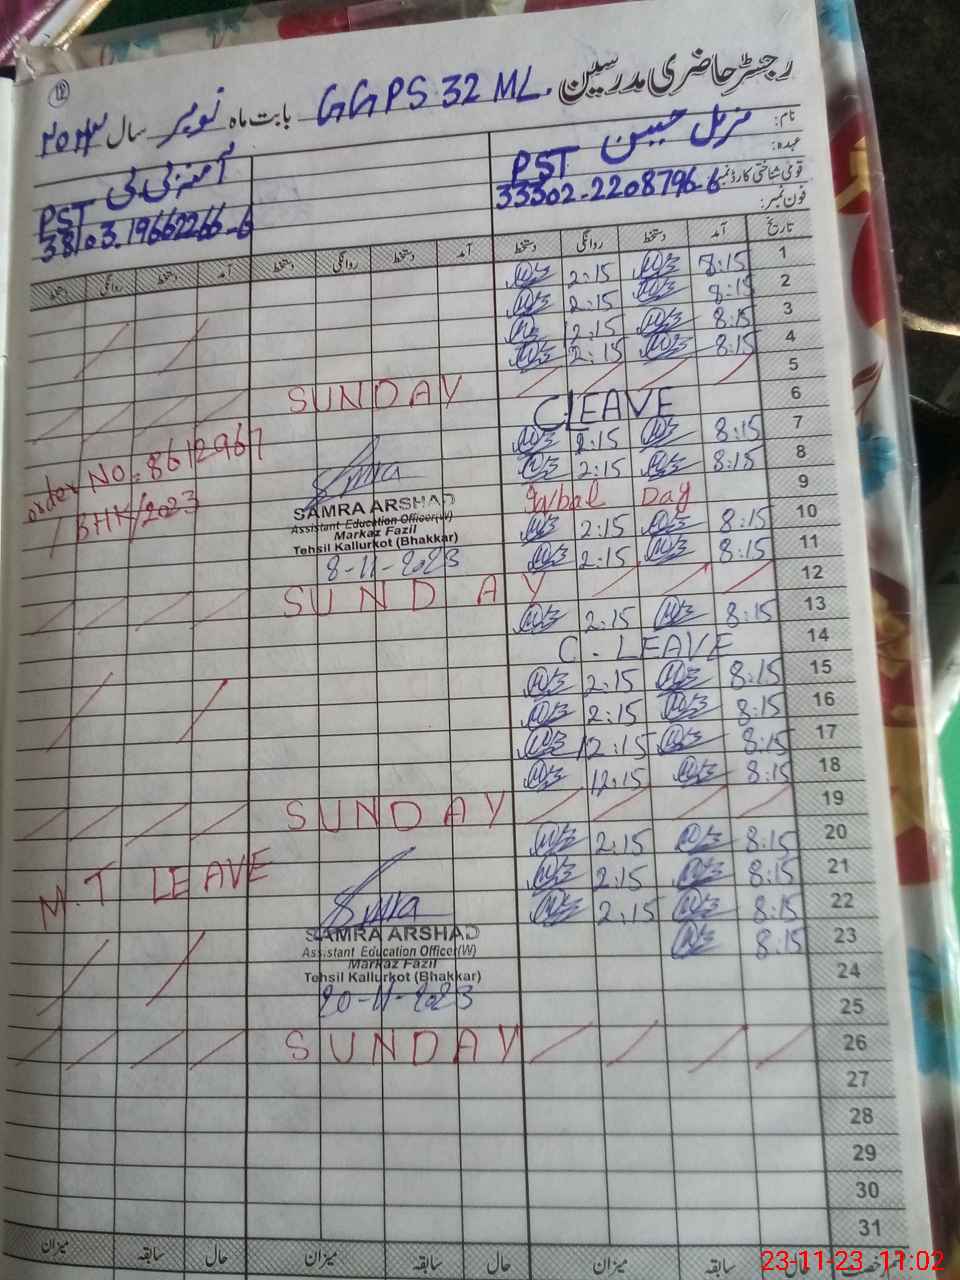 رجسٹر حاضری مدرسین GGPS 32 ML. بابت ماہ نومبر سال ۲۰۲۳
نام: مزمل حسین
عہدہ: PST
قومی شناختی کارڈ نمبر 33302-2208796-6
فون نمبر:
آمنہ بی بی
PST
38103-19662266-6
تاریخ آمد دستخط روانگی دستخط آمد دستخط روانگی دستخط آمد دستخط روانگی دستخط
1 8:15 2:15
2 8:15 2:15
3 8:15 12:15
4 8:15 2:15
5 SUNDAY
6 C LEAVE
7 8:15 2:15
8 8:15 2:15
order NO: 8612967
/BHK/2023
9 Iqbal Day
SAMRA ARSHAD
Assistant Education Officer(W)
Markaz Fazil
Tehsil Kallurkot (Bhakkar)
8-11-2023
10 8:15 2:15
11 8:15 2:15
12 SUNDAY
13 8:15 2:15
14 C. LEAVE
15 8:15 2:15
16 8:15 2:15
17 8:15 12:15
18 8:15 12:15
19 SUNDAY
20 8:15 2:15
21 8:15 2:15
M.T LEAVE
22 8:15 2:15
23 8:15
SAMRA ARSHAD
Assistant Education Officer(W)
Markaz Fazil
Tehsil Kallurkot (Bhakkar)
20-11-2023
24
25
26 SUNDAY
27
28
29
30
31
حال سابقہ میزان حال سابقہ میزان حال سابقہ میزان
23-11-23 11:02